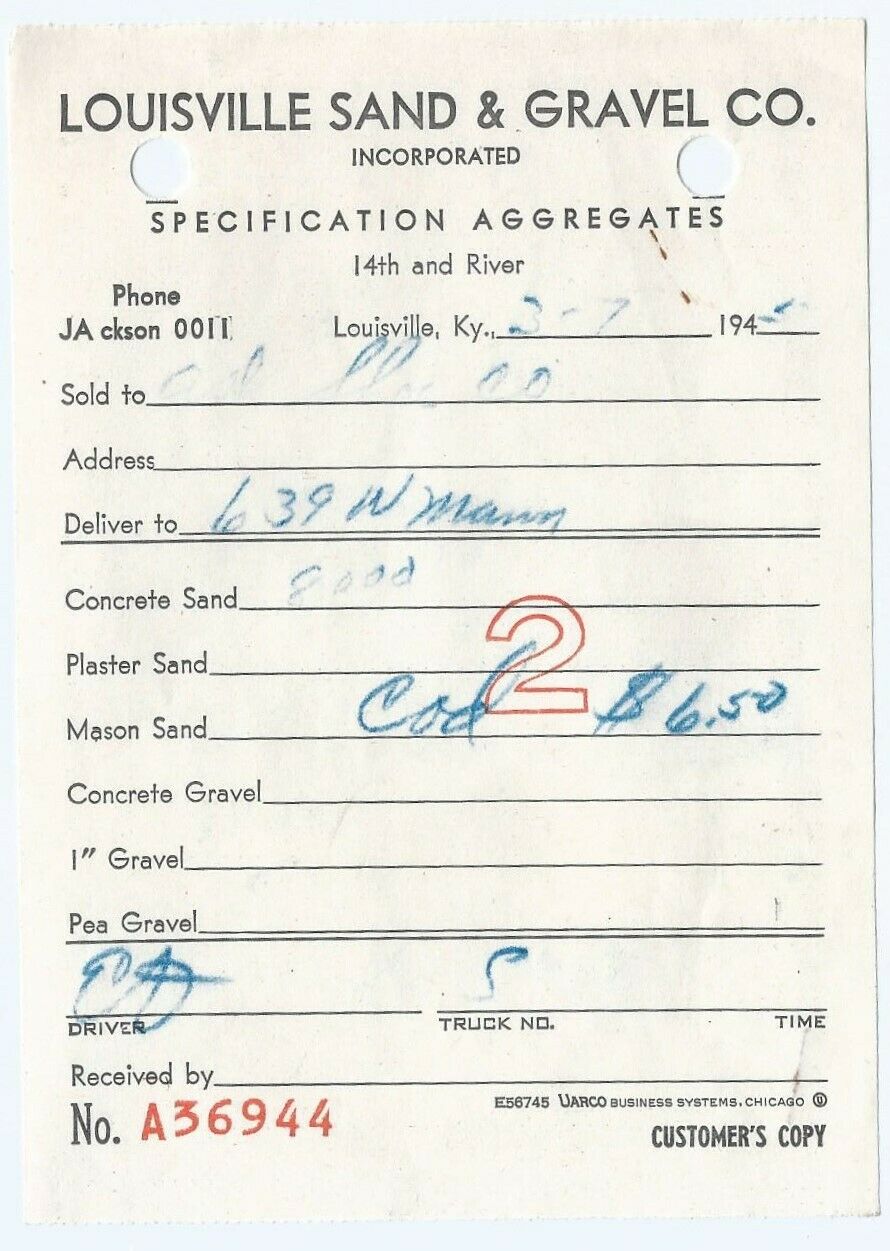 LOUISVILLE SAND & GRAVEL CO.
INCORPORATED
SPECIFICATION AGGREGATES
14th and River
Phone
JAckson 0011 Louisville, Ky., 3-7 1945
Sold to
Address
Deliver to 639 W
Concrete Sand good
2
Plaster Sand
Mason Sand Cod $6.50
Concrete Gravel
1" Gravel
Pea Gravel
5
DRIVER TRUCK NO. TIME
Received by
E56745 UARCO BUSINESS SYSTEMS, CHICAGO U
No. A36944
CUSTOMER'S COPY